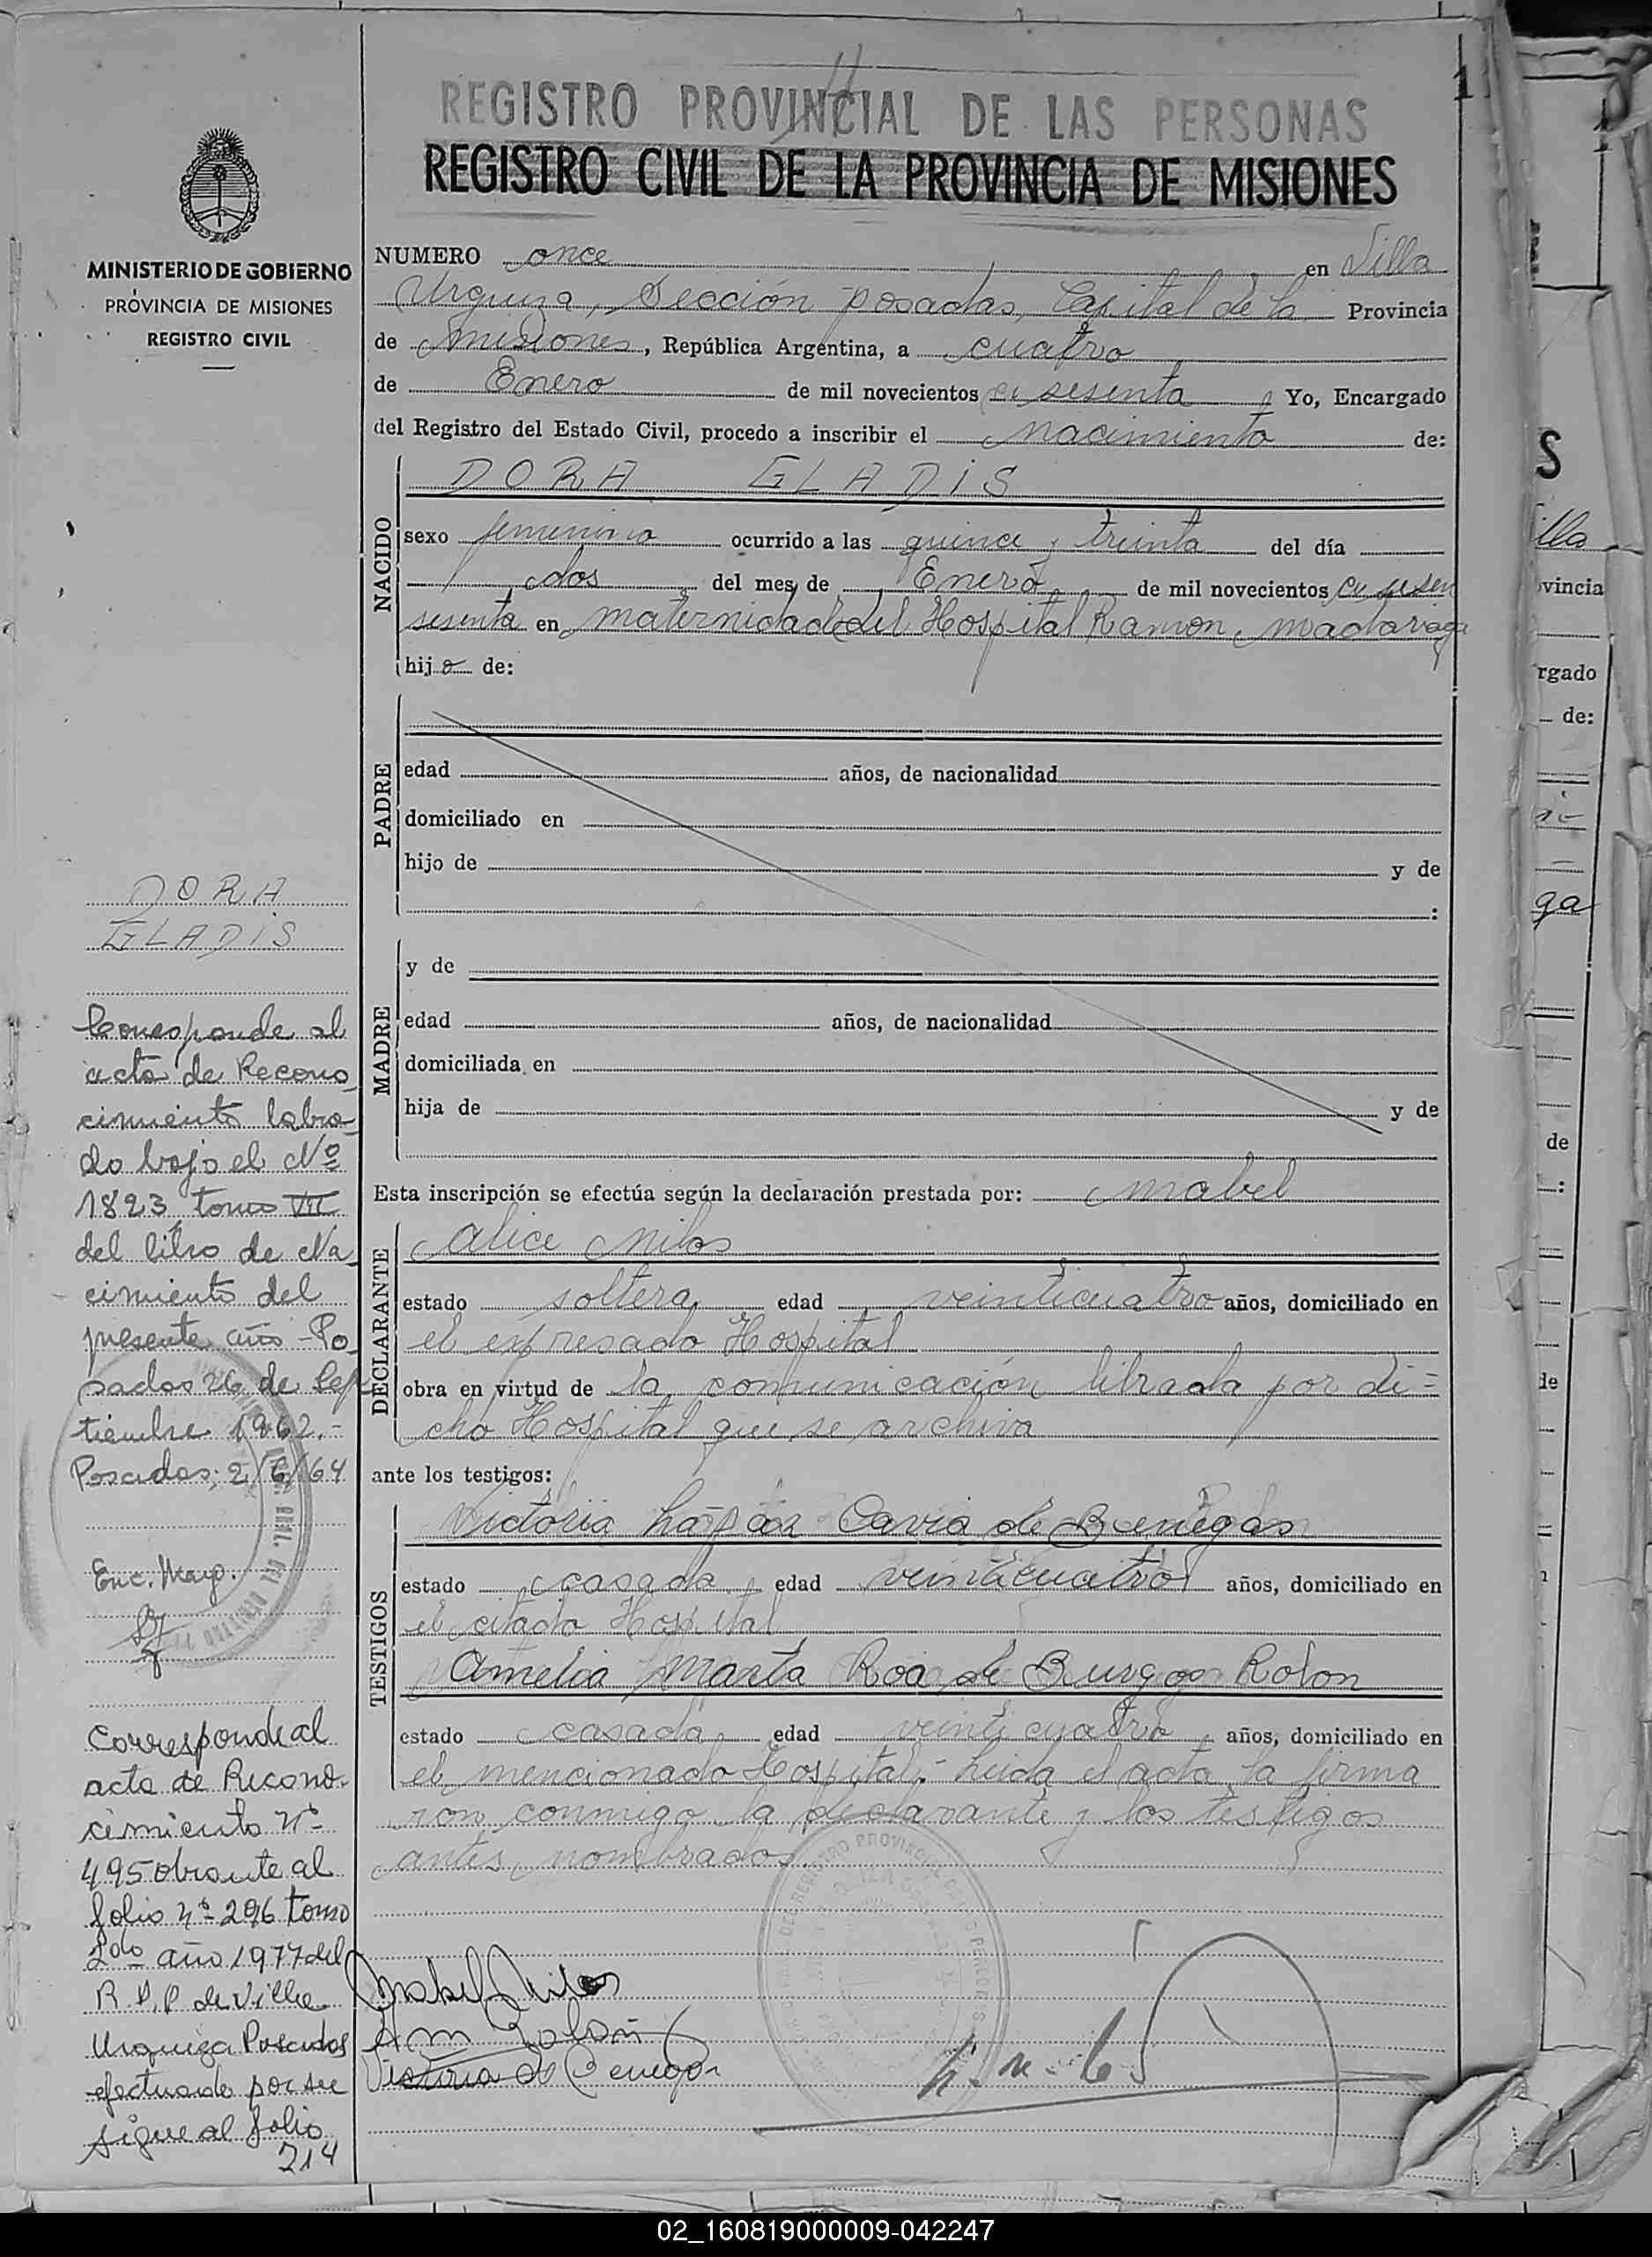 REGISTRO PROVINCIAL DE LAS PERSONAS
REGISTRO CIVIL DE LA PROVINCIA DE MISIONES
MINISTERIO DE GOBIERNO
PROVINCIA DE MISIONES
REGISTRO CIVIL
NUMERO once en Villa
Urquiza, Sección posadas, Capital de la Provincia
de misiones, República Argentina, a cuatro
de Enero de mil novecientos sesenta Yo, Encargado
del Registro del Estado Civil, procedo a inscribir el nacimiento de:
NACIDO
DORA GLADIS
sexo femenino ocurrido a las quince y treinta del día
dos del mes de Enero de mil novecientos
sesenta en maternidad del Hospital Ramon madariaga
hija de:
PADRE
edad años, de nacionalidad
domiciliado en
hijo de y de
:
MADRE
y de
edad años, de nacionalidad
domiciliada en
hija de y de
Esta inscripción se efectúa según la declaración prestada por: mabel
DECLARANTE
alice milos
estado soltera edad veinticuatro años, domiciliado en
el expresado Hospital
obra en virtud de la comunicación librada por di=
cho Hospital que se archiva
ante los testigos:
TESTIGOS
Victoria Cavia de Benegas
estado casada edad veinticuatro años, domiciliado en
el citado Hospital
Amelia Marta Roa de Burgos Rolon
estado casada edad veinticuatro años, domiciliado en
el mencionado Hospital.- Leida el acta la firma
ron conmigo la declarante y los testigos
antes nombrados.
Mabel Milos
Victoria de Benegas
DORA
GLADIS
Corresponde al
acta de Recono
cimiento labra
do bajo el Nº
1823 tomo VII
del libro de Na
cimiento del
presente año - Po
sadas 26 de Sep
tiembre 1962.-
Posadas; 2/6/64
Enc. Mayo.
Corresponde al
acta de Recono-
cimiento nº
495 obrante al
folio nº 296 tomo
2do año 1977 del
R.P.P de Villa
Urquiza Posadas
efectuado por su
sigue al folio
214
02_160819000009-042247
S
illa
vincia
rgado
de:
ga
de
:
de